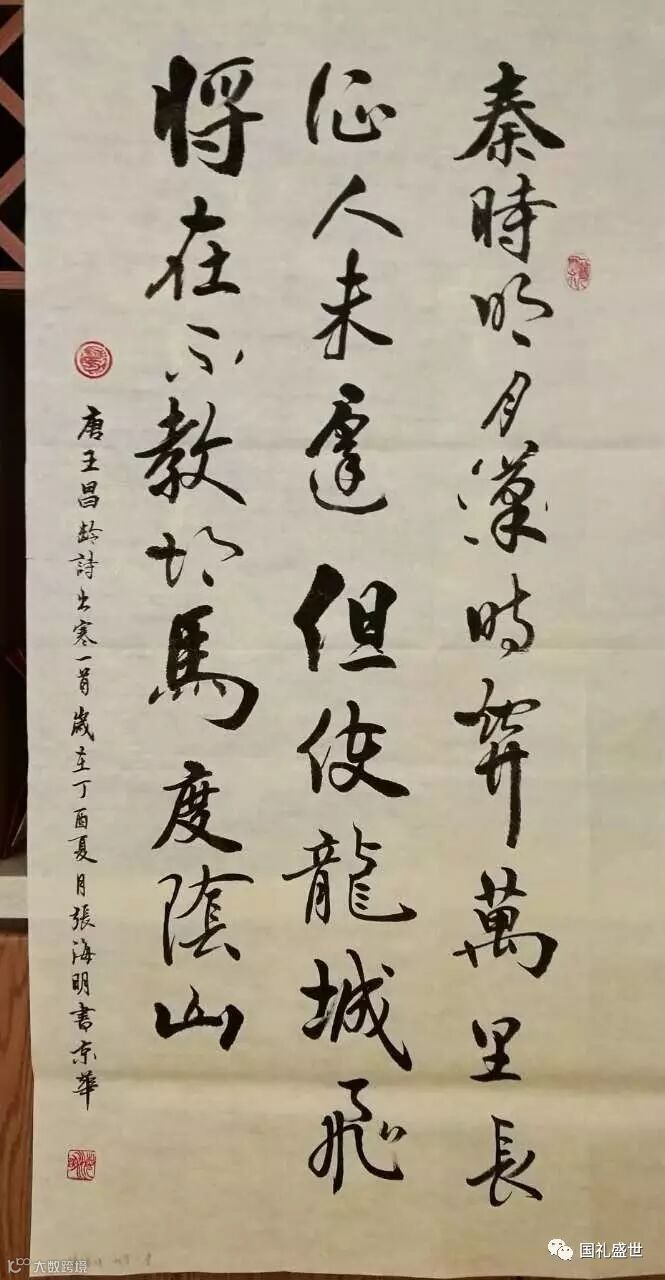 秦時明月漢時關萬里長
征人未還但使龍城飛
將在不教胡馬度陰山
唐王昌齡詩出塞一首歲在丁酉夏月張海明書京華
大数跨境
国礼盛世